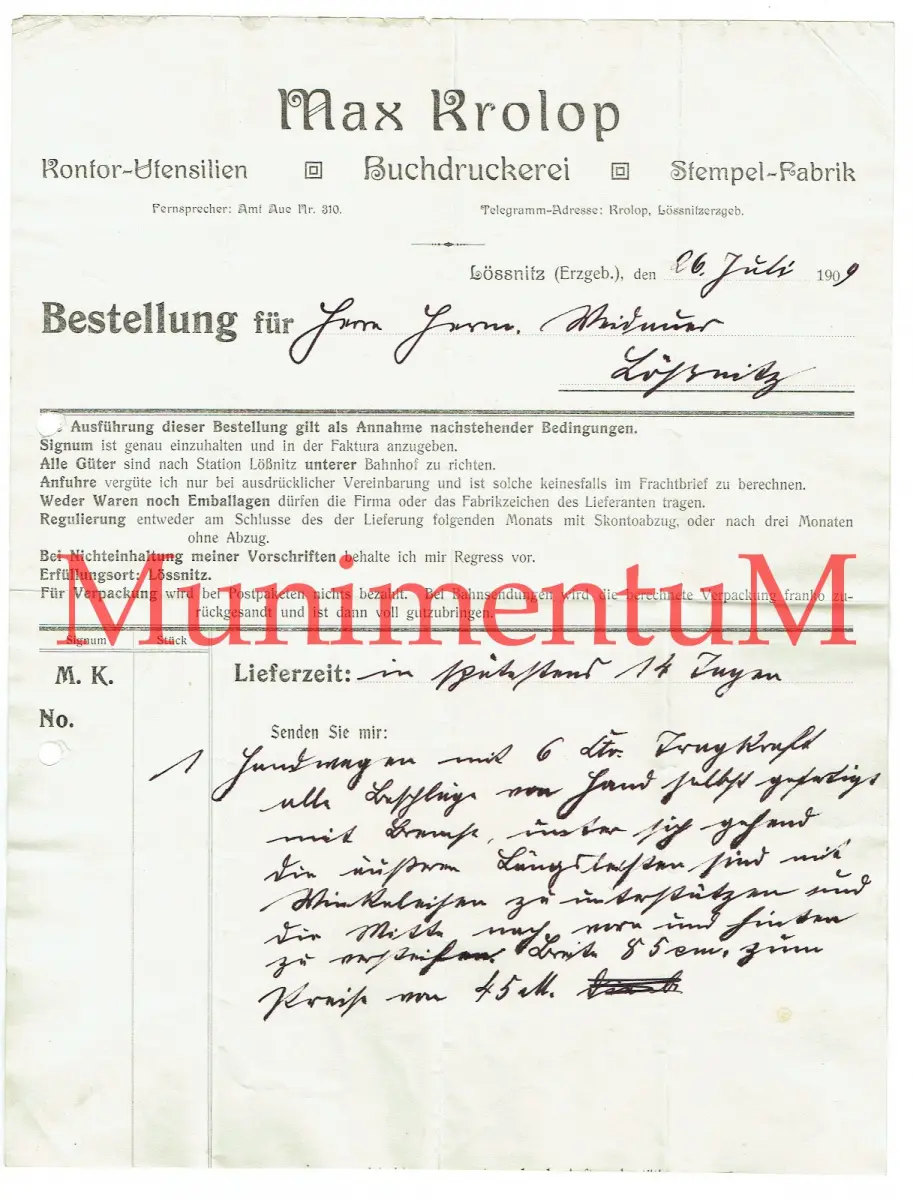 Max Krolop
Kontor-Utensilien Buchdruckerei Stempel-Fabrik
Fernsprecher: Amt Aue Nr. 310. Telegramm-Adresse: Krolop, Lössnitzerzgeb.
Lössnitz (Erzgeb.), den 26. Juli 1909
Bestellung für Herrn Herm. Weidauer
Lößnitz
Ausführung dieser Bestellung gilt als Annahme nachstehender Bedingungen.
Signum ist genau einzuhalten und in der Faktura anzugeben.
Alle Güter sind nach Station Lößnitz unterer Bahnhof zu richten.
Anfuhre vergüte ich nur bei ausdrücklicher Vereinbarung und ist solche keinesfalls im Frachtbrief zu berechnen.
Weder Waren noch Emballagen dürfen die Firma oder das Fabrikzeichen des Lieferanten tragen.
Regulierung entweder am Schlusse des der Lieferung folgenden Monats mit Skontoabzug, oder nach drei Monaten
ohne Abzug.
Bei Nichteinhaltung meiner Vorschriften behalte ich mir Regress vor.
Erfüllungsort: Lössnitz.
Für Verpackung wird bei Postpaketen nichts bezahlt. Bei Bahnsendungen wird die berechnete Verpackung franko zu-
rückgesandt und ist dann voll gutzubringen.
MunimentuM
Signum Stück
M. K. Lieferzeit: in spätestens 14 Tagen
No.
Senden Sie mir:
1 Handwagen mit 6 Ctr. Tragkraft
alle Beschläge von Hand selbst gefertigt
mit Bremse, unter sich gehend
die äußeren Längsleisten sind mit
Winkeleisen zu unterstützen und
die Mitte nach vorn und hinten
zu versteifen. Breite 85 cm. zum
Preise von 45 M.